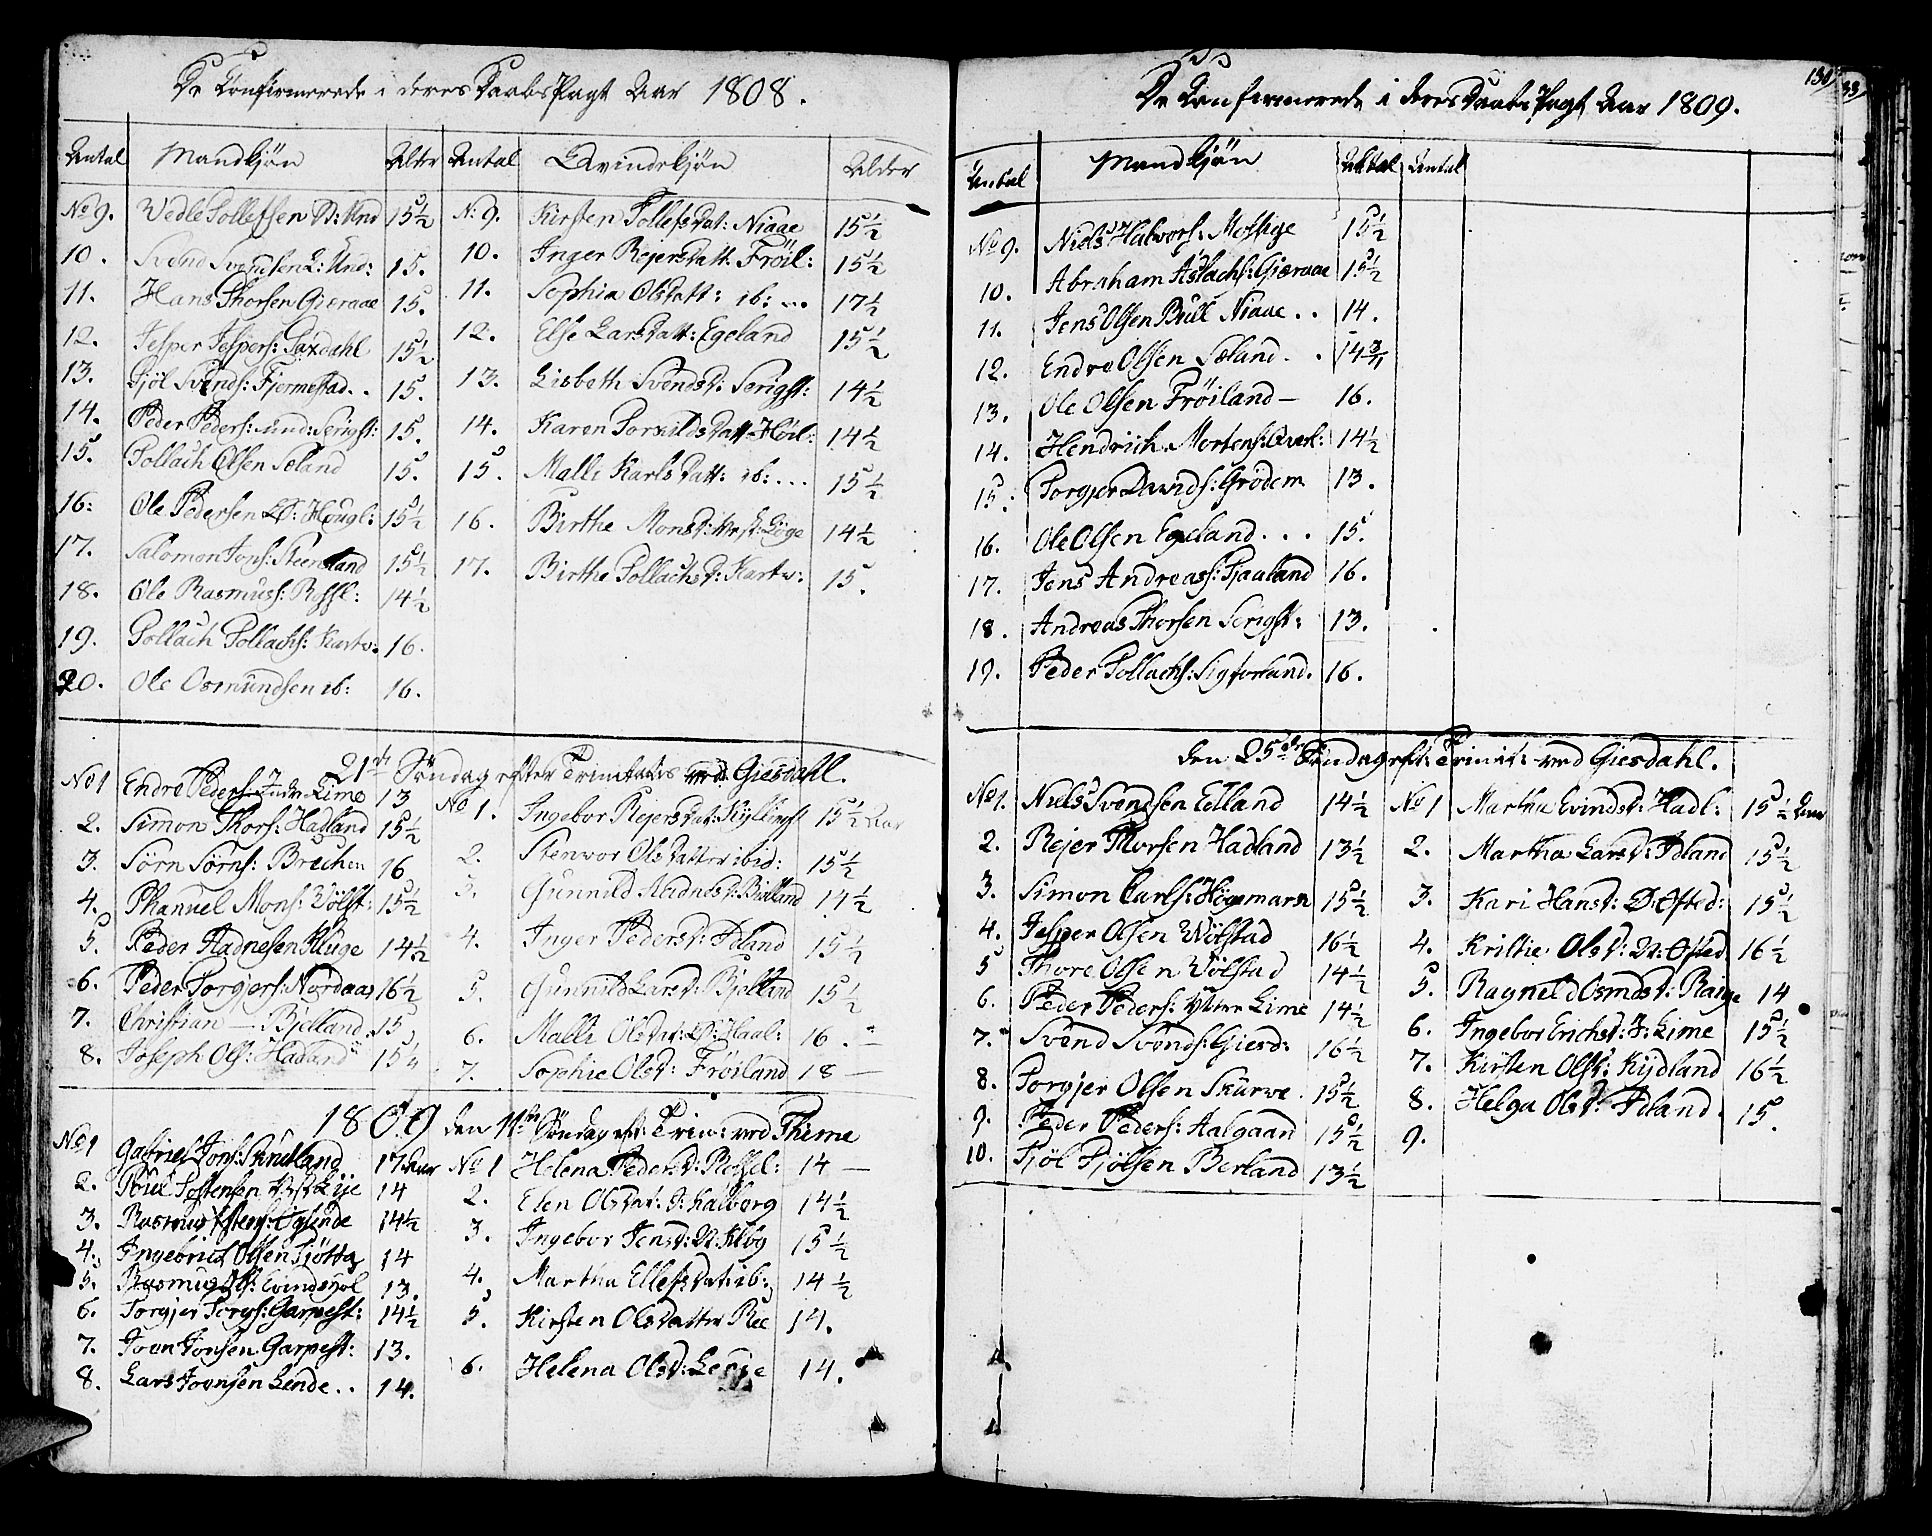 De Confirmerede i deres Daabs Pagt Aar 1808.
Antal Mandkjøn Alder Antal Qvindekjøn Alder
No 9. Wedle Tollefsen Und 15½ No 9. Kirsten Tollefsdat: Niaae 15½
10. Svend Svendsen L: Und: 15. 10. Inger Rejersdatt: Fröil: 15½
11. Hans Thorsen Gieraae 15. 11. Sophia Olsdatt: ib: ... 17½
12. Jesper Jespers: Taxdahl 15½ 12. Else Larsdatt: Egeland 15½
13. Tjöl Svends: Fjermestad.. 15. 13. Lisbeth Svendsd: Serigst: 14½
14. Peder Peders: und: Serigst: 15. 14. Karen Torkildsdatt: Höil: 14½
15. Tollach Olsen Sæland 15. 15. Malli Karlsdatt: ib: ... 15½
16: Ole Pedersen Hougl: 15½ 16. Birthe Monsd: Lÿge 14½
17. Salomon Jons: Steensland 15½ 17. Birthe Tollachsd: Kartv: 15.
18. Ole Rasmuss: Rossl: 14½
19. Tollach Tollachs: Kartv. 16.
20. Ole Osmundsen ib: 16.
21de Söndag efter Trinitatis ved Giesdahl.
No 1 Endre Peders: Indr Lime 13 No 1. Ingebor Rejersdat: Kyllingst 15½ Aar
2. Simon Thors: Hadland 15½ 2. Stenvor Olsdatter ibid: 15½
3. Sörn Sörns: Brechen 16 3. Gunnild Radnesd: Bieland 17½
4. Phanuel Mons: Wölst: 15½ 4. Inger Pedersd: Edland 15½
5. Peder Hadnesen Kluge 14½ 5. Gunnild Larsd: Bjelland 15½
6. Peder Torgjers: Nordaas 16½ 6. Malli Olsdat: Ø: Haal: 16. -
7. Christian — Bjelland 15 7. Sophie Olsd: Fröiland 18 —
8. Joseph Ols: Hadland 15½
1809 den 11te Söndag eft: Trin: ved Thime
No 1 Gabriel Jons: Skruland 17 Aar No 1 Helena Pedersd: Rossel: 14 —
2. Poul Tostensen Lÿe 14 2. Elen Olsdat: J: Kalberg 14½
3. Rasmus Osters: Oglende 14½ 3. Ingebor Jensd: N: Klbg 15½
4. Ingebrict Olsen Tjötta 14 4. Martha Ellefsdat: ib: 14½
5. Rasmus Ols: Evindshol 13. 5. Kirsten Olsdatter Ree 14.
6. Torgjer Torgs: Garpest: 14½ 6. Helena Olsd: 14.
7. Joen Jonsen Garpest: 13.
8. Lars Joensen Lende.. 14.
De Confirmerede i deres Daabs Pagt Aar 1809.
Antal Mandkjön Antal
No 9. Niels Halvors: Mossige 15½
10. Abraham Aslachs: Gieraae 15½
11. Jens Olsen Brül Niaae.. 14.
12. Endre Olsen Sæland.. 14¾
13. Ole Olsen Fröiland — 16.
14. Hendrich Mortens: 14½
15. Torgjer Davids: Grödem 13.
16. Ole Olsen Egeland... 15.
17. Jens Andreass: Tjaaland 16.
18. Andreas Thorsen Serigst: 13.
19. Peder Tollachs: Sigforland. 16.
den 25de Söndag eft: Trinit: ved Giesdahl.
No 1. Niels Svendsen Edland 14½ No 1 Martha Evindsd: Hadl: 15½ Aar
2. Rejer Thorsen Hadland 13½ 2. Martha Larsd: Edland 15½
3. Simon Carls: Högemark 15½ 3. Kari Hansd: Ø: Ofted: 15½
4. Jesper Olsen Wölstad 16½ 4. Kristie Olsd: N: Ofted 16½
5 Thore Olsen Wölstad 14½ 5. Ragnild Osmdsd: Raige 14
6. Peder Peders: Ytter Lime 14½ 6. Ingebor Erichsd: J: Lime 15½
7. Svend Svends: Giesd: 16½ 7. Kirsten Olsd: Kÿdland 16½
8. Torgjer Olsen Skurve 15½ 8. Helga Olsd: Edland 15.
9. Peder Peders: Aalgaard 15½ 9.
10. Tjöl Tjölsen Berland 13½